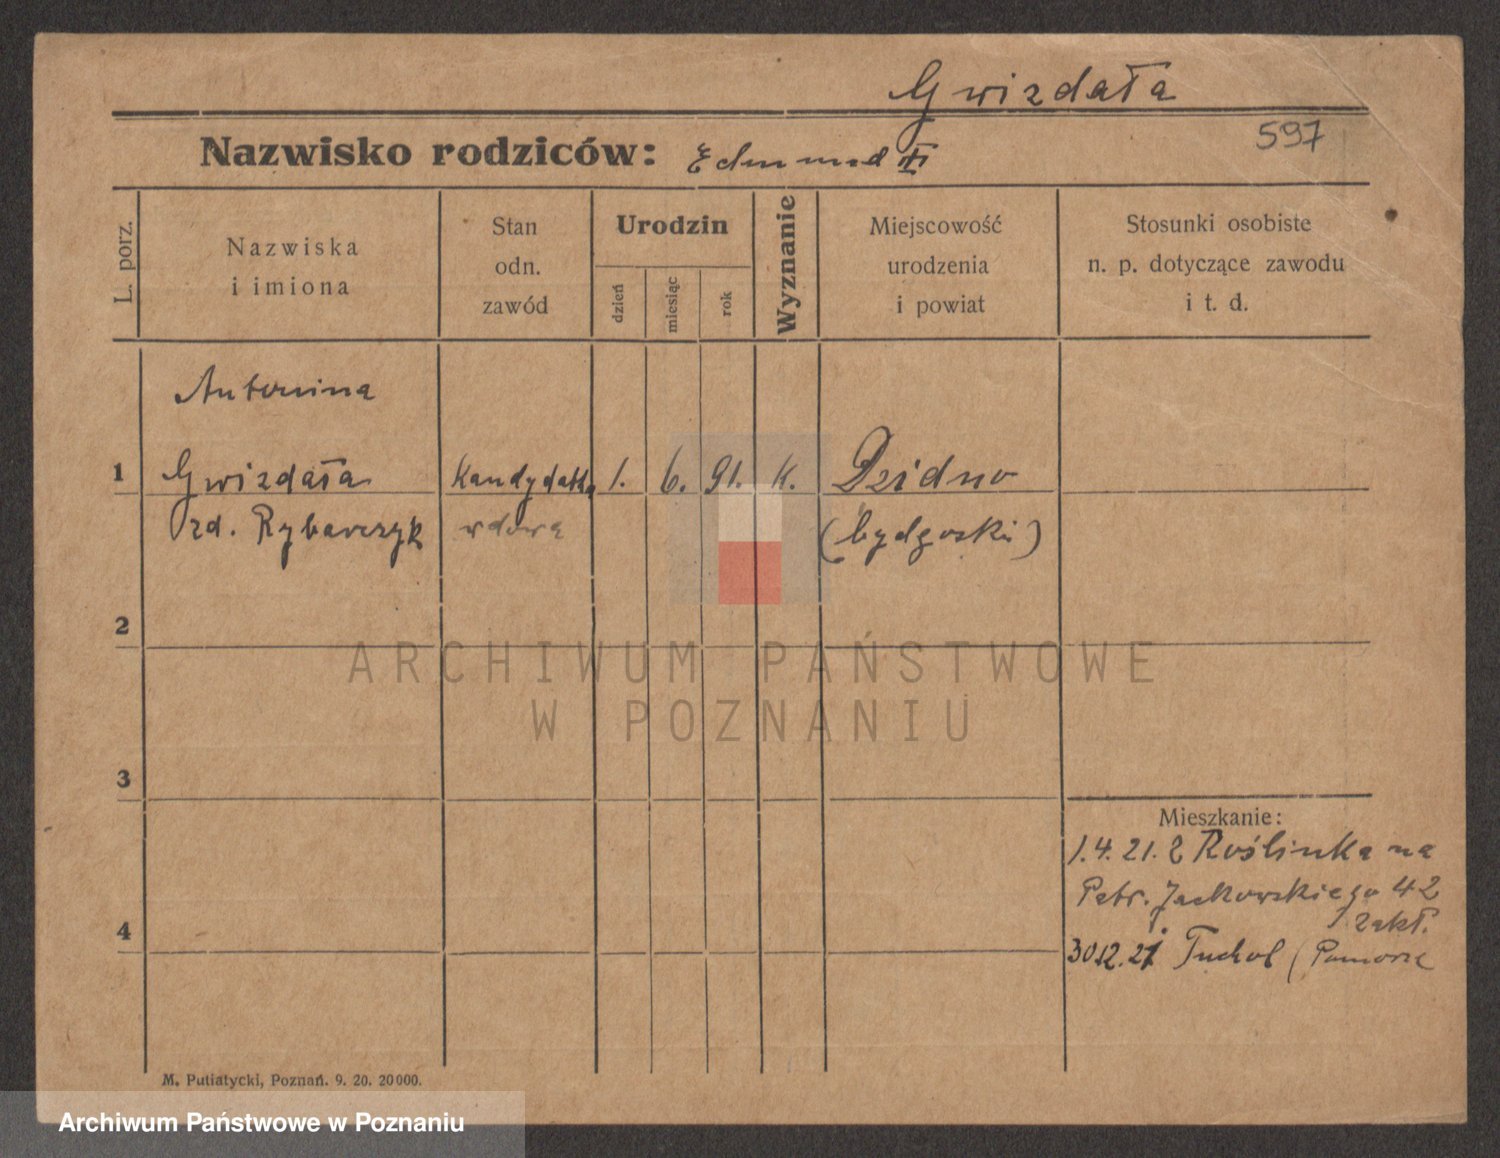 Gwizdała
597
Nazwisko rodziców: Edmund
L. porz.
Nazwiska
i imiona
Stan
odn.
zawód
Urodzin
dzień
miesiąc
rok
Wyznanie
Miejscowość
urodzenia
i powiat
Stosunki osobiste
n. p. dotyczące zawodu
i t. d.
Antonina
1 Gwizdała kandydatka 1. 6. 91. k. Dzidno
zd. Rybarczyk wdowa (bydgoski)
2
3
4
Mieszkanie:
1.4.21. z Roślinka na
Patr. Jackowskiego 42
zakł.
30.12.21 Tuchol (Pomorze
M. Putiatycki, Poznań. 9. 20. 20 000.
ARCHIWUM PAŃSTWOWE
W POZNANIU
Archiwum Państwowe w Poznaniu